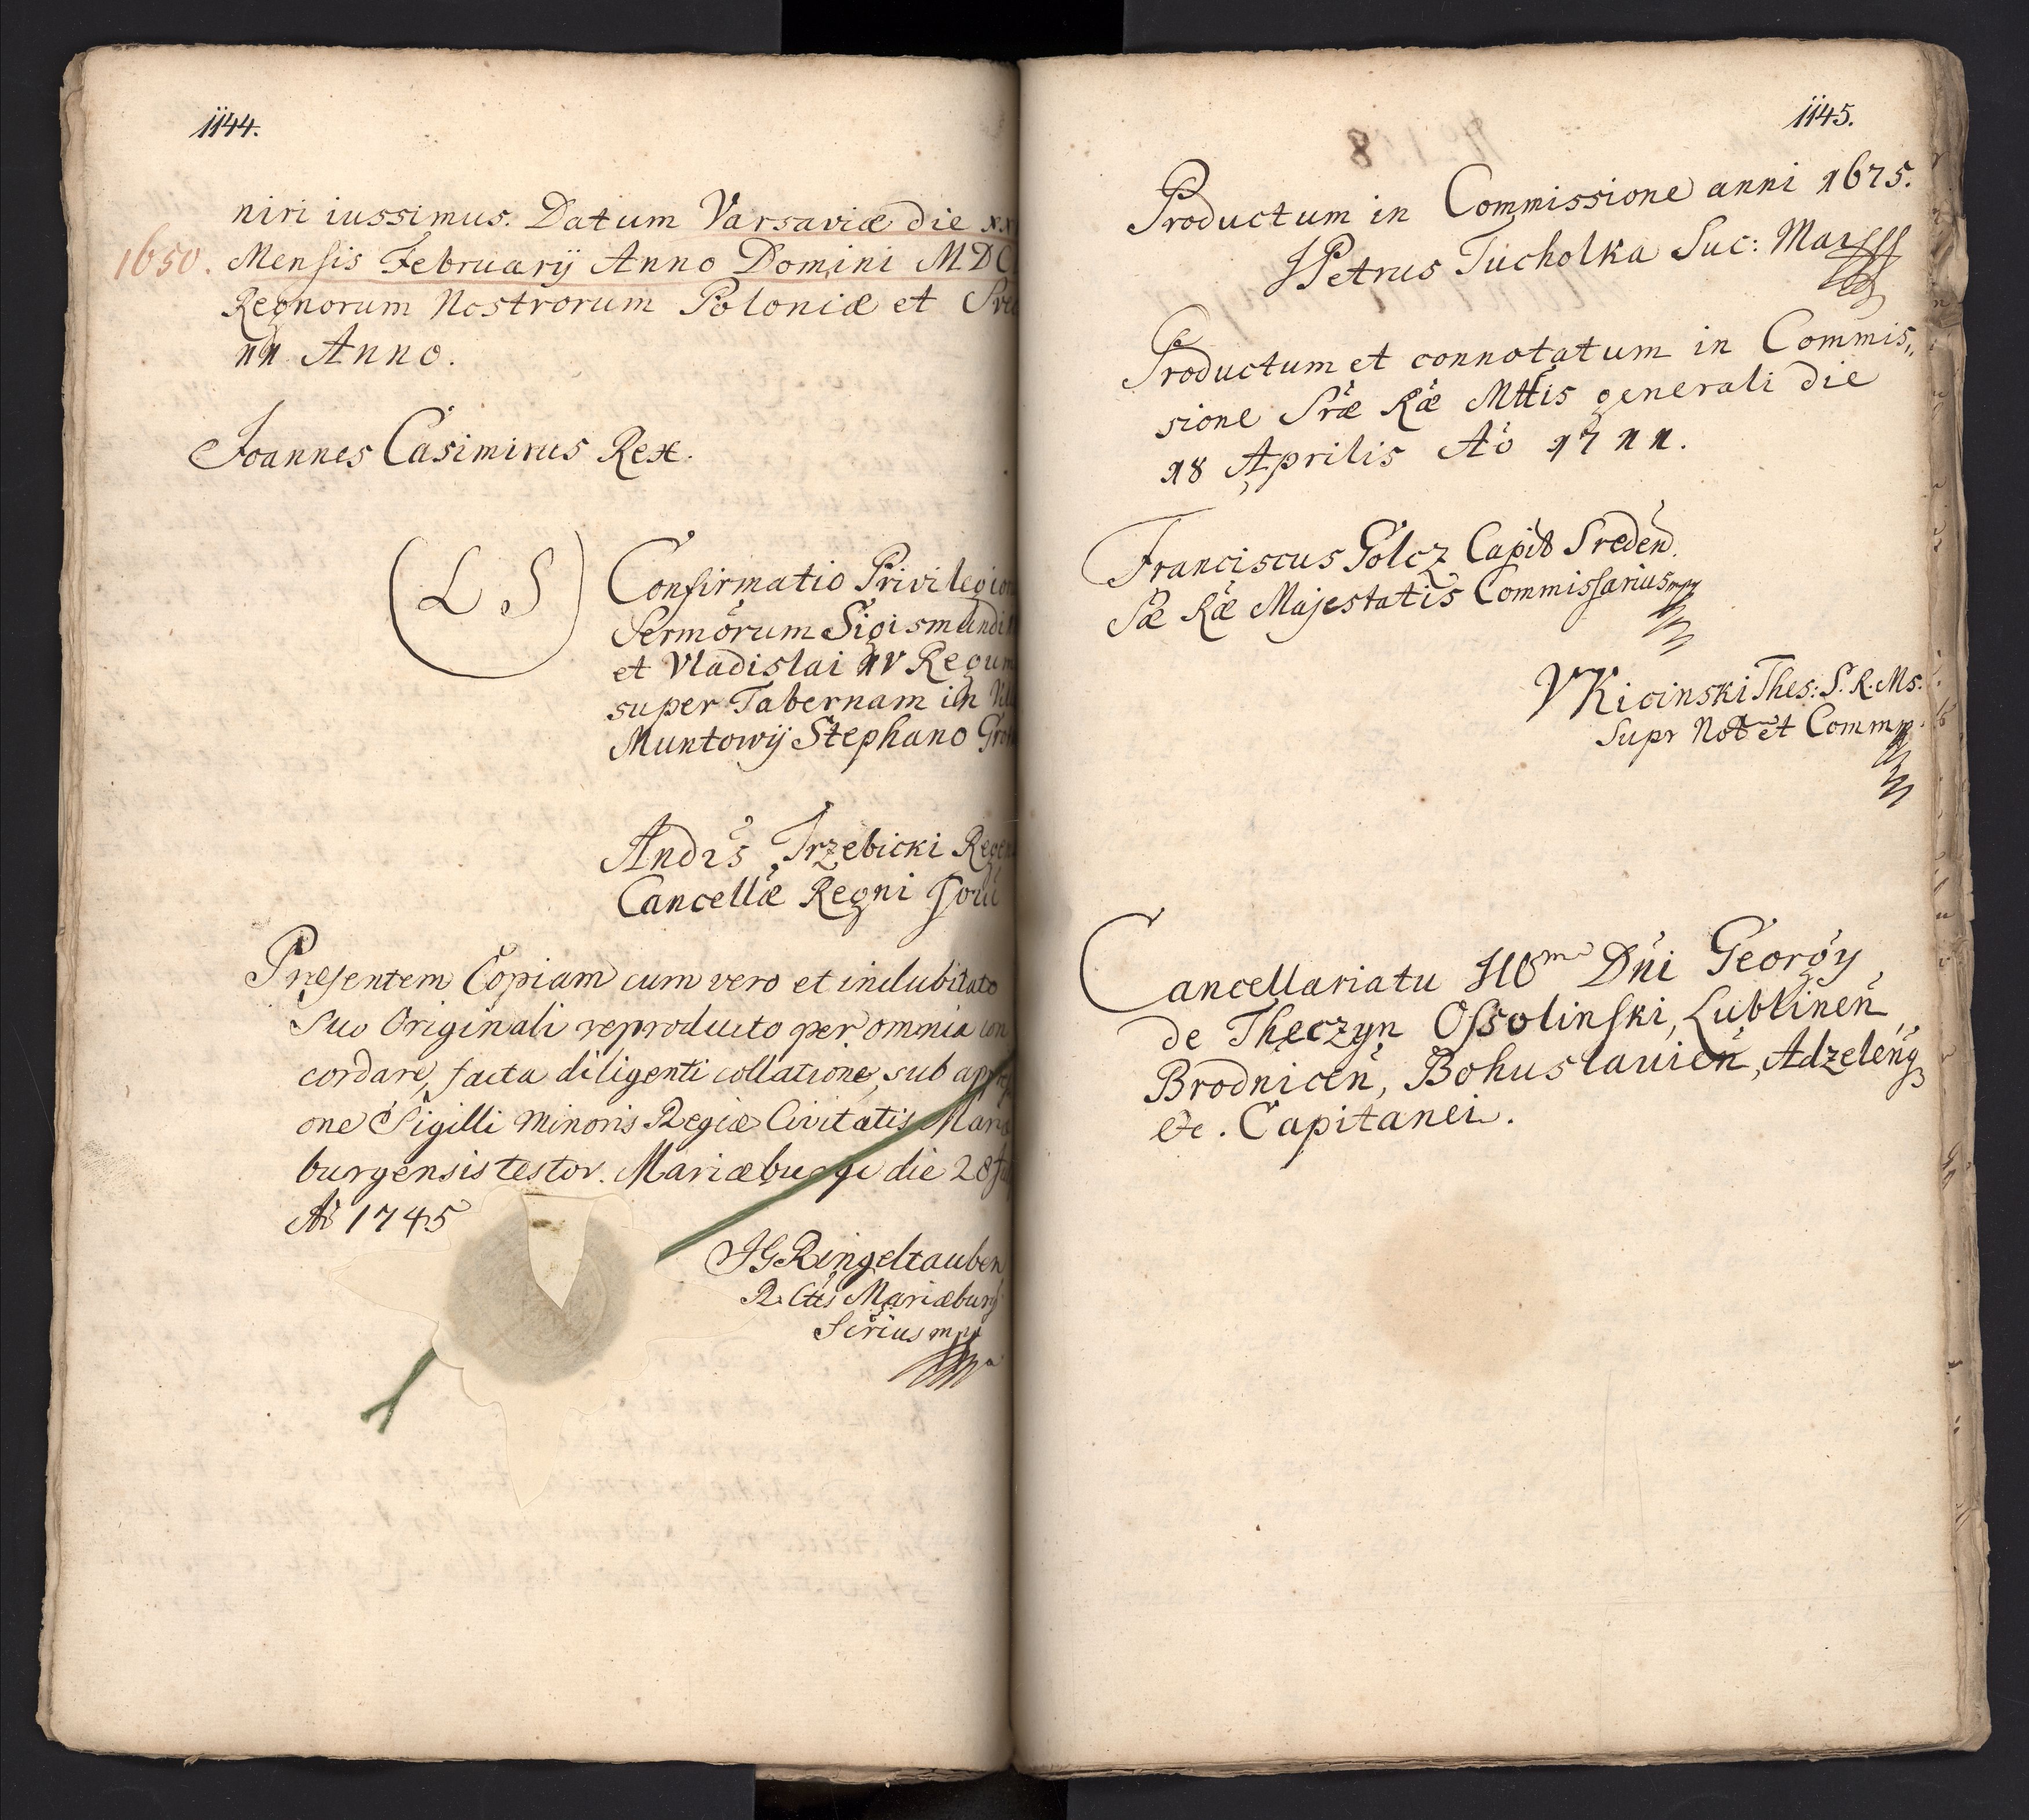 1144.
niri iussimus. Datum Varsaviæ die
1650. Mensis Februarij Anno Domini
Regnorum Nostrorum Poloniæ et
II Anno.
Joannes Casimirus Rex.
(L S)
Confirmatio
Sermõrum
et Vladislai IV
super Tabernam in
Muntowij Stephano
Andrs Trzebicki
Cancellæ Regni
Presentem Copiam cum vero et indubitato
Suo Originali reproducto per omnia con
cordare, facta diligenti collatione, sub
one Sigilli minoris Regiæ Civitatis
burgensis testor. Mariæburgi die 28
Aõ 1745
JGRingeltauben
R. Cttis Mariæburg
Scrius mpp
1145.
Productum in Commissione anni 1675.
Petrus Tucholka Suc: Mar
Productum et connotatum in Commis„
sione Sræ Ræ Mttis generali die
18 Aprilis Aõ 1711.
Franciscus Golcz Capit Sreden.
Sæ Ræ Majestatis Commissarius mpp
VKicinski Thes: S. R. Ms.
Supr Not et Comm mp.
Cancellariatu Illm Dni Georgy
de Theczyn Ossolinski, Lublinen
Brodnicen, Bohuslavien, Adzeleng
etc. Capitanei.